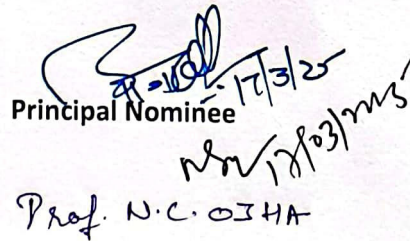 17/3/25
Principal Nominee
17/03/2025
Prof. N.C. OJHA